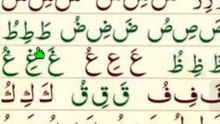 صَ صِ صُ ضَ ضِ ضُ طَ طِ طُ
ظَ ظِ ظُ عَ عِ عُ غَ غِ غُ
فَ فِ فُ قَ قِ قُ كَ كِ كُ